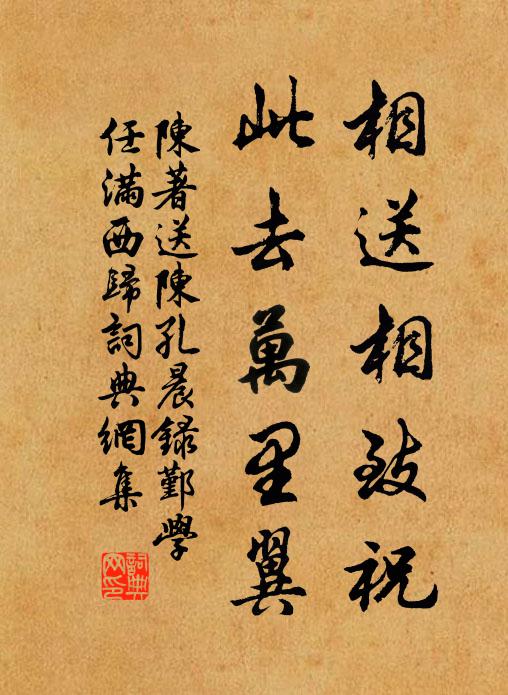 相送相致祝
此去萬里翼
陳著送陳孔晨錄鄞學
任滿西歸詞典網集
詞典网印